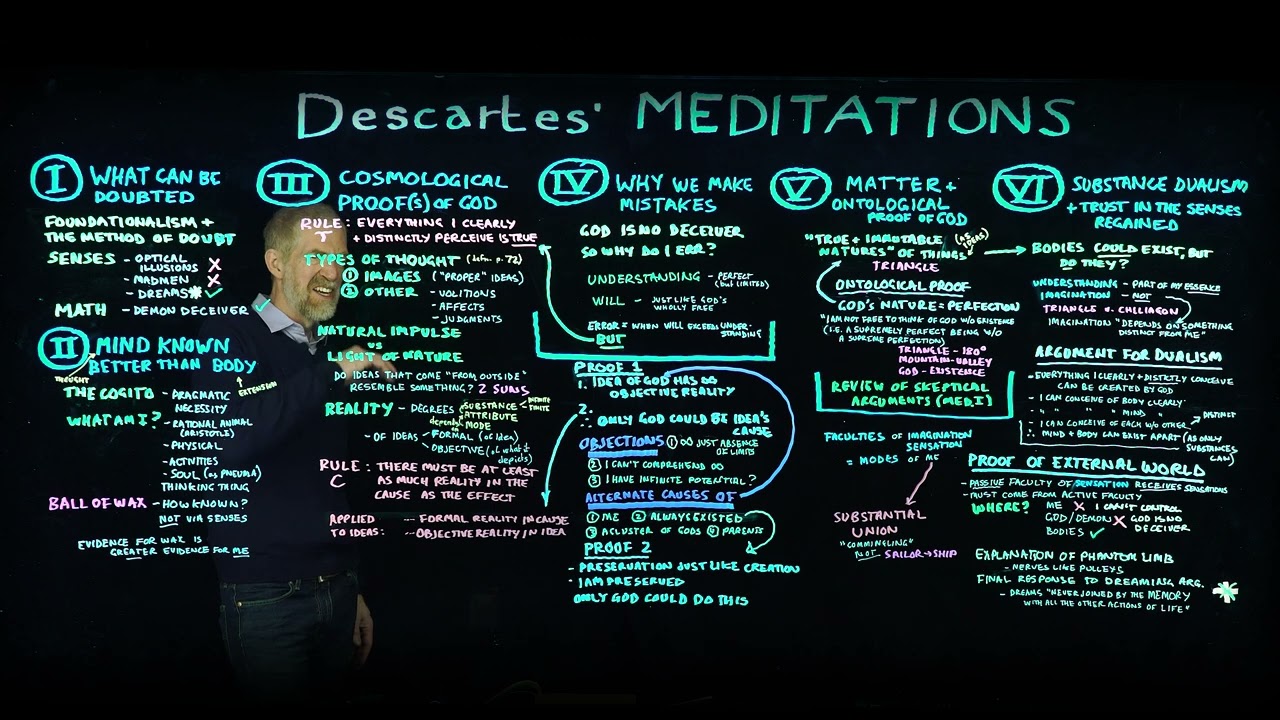 Descartes' MEDITATIONS
I WHAT CAN BE
DOUBTED
FOUNDATIONALISM +
THE METHOD OF DOUBT
SENSES - OPTICAL
ILLUSIONS X
- MADMEN X
- DREAMS * ✓
MATH - DEMON DECEIVER ✓
II MIND KNOWN
BETTER THAN BODY
THOUGHT
EXTENSION
THE COGITO - PRAGMATIC
NECESSITY
WHAT AM I? - RATIONAL ANIMAL
(ARISTOTLE)
- PHYSICAL
- ACTIVITIES
- SOUL (AS PNEUMA)
THINKING THING
BALL OF WAX - HOW KNOWN?
NOT VIA SENSES
EVIDENCE FOR WAX IS
GREATER EVIDENCE FOR ME
III COSMOLOGICAL
PROOF(S) OF GOD
RULE: EVERYTHING I CLEARLY
T + DISTINCTLY PERCEIVE IS TRUE
TYPES OF THOUGHT (defn. p. 72)
① IMAGES ("PROPER" IDEAS)
② OTHER - VOLITIONS
- AFFECTS
- JUDGMENTS
NATURAL IMPULSE
VS
LIGHT OF NATURE
DO IDEAS THAT COME "FROM OUTSIDE"
RESEMBLE SOMETHING? 2 SUNS
REALITY - DEGREES SUBSTANCE INFINITE
FINITE
ATTRIBUTE
depends on MODE
- OF IDEAS - FORMAL (of idea)
- OBJECTIVE (of what it
depicts)
RULE: THERE MUST BE AT LEAST
C AS MUCH REALITY IN THE
CAUSE AS THE EFFECT
APPLIED --- FORMAL REALITY IN CAUSE
TO IDEAS: --- OBJECTIVE REALITY IN IDEA
IV WHY WE MAKE
MISTAKES
GOD IS NO DECEIVER
SO WHY DO I ERR?
UNDERSTANDING - PERFECT
(but LIMITED)
WILL - JUST LIKE GOD'S
WHOLLY FREE
ERROR = WHEN WILL EXCEEDS UNDER-
STANDING
BUT
PROOF 1
1. IDEA OF GOD HAS ∞
OBJECTIVE REALITY
2. ∴ ONLY GOD COULD BE IDEA'S
CAUSE
OBJECTIONS ① ∞ JUST ABSENCE
OF LIMITS
② I CAN'T COMPREHEND ∞
③ I HAVE INFINITE POTENTIAL?
ALTERNATE CAUSES OF
① ME ② ALWAYS EXISTED
③ A CLUSTER OF GODS ④ PARENTS
PROOF 2
- PRESERVATION JUST LIKE CREATION
- I AM PRESERVED
ONLY GOD COULD DO THIS
V MATTER +
ONTOLOGICAL
PROOF OF GOD
"TRUE + IMMUTABLE (AS
NATURES" OF THINGS IDEAS)
TRIANGLE
ONTOLOGICAL PROOF
GOD'S NATURE = PERFECTION
"I AM NOT FREE TO THINK OF GOD W/O EXISTENCE
(I.E. A SUPREMELY PERFECT BEING W/O
A SUPREME PERFECTION)
TRIANGLE - 180°
MOUNTAIN - VALLEY
GOD - EXISTENCE
REVIEW OF SKEPTICAL
ARGUMENTS (MED. I)
FACULTIES OF IMAGINATION
SENSATION
= MODES OF ME
SUBSTANTIAL
UNION
"COMMINGLING"
NOT SAILOR → SHIP
VI SUBSTANCE DUALISM
+ TRUST IN THE SENSES
REGAINED
BODIES COULD EXIST, BUT
DO THEY?
UNDERSTANDING - PART OF MY ESSENCE
IMAGINATION - NOT
TRIANGLE v. CHILIAGON
IMAGINATION "DEPENDS ON SOMETHING
DISTINCT FROM ME"
ARGUMENT FOR DUALISM
- EVERYTHING I CLEARLY + DISTINCTLY CONCEIVE
CAN BE CREATED BY GOD
- I CAN CONCEIVE OF BODY CLEARLY
- " " " " MIND "
- I CAN CONCEIVE OF EACH W/O OTHER DISTINCT
∴ MIND + BODY CAN EXIST APART (AS ONLY
SUBSTANCES
CAN)
PROOF OF EXTERNAL WORLD
- PASSIVE FACULTY OF SENSATION RECEIVES SENSATIONS
- MUST COME FROM ACTIVE FACULTY
WHERE? ME X I CAN'T CONTROL
GOD/DEMON X GOD IS NO
DECEIVER
BODIES ✓
EXPLANATION OF PHANTOM LIMB
- NERVES LIKE PULLEYS
FINAL RESPONSE TO DREAMING ARG. *
- DREAMS "NEVER JOINED BY THE MEMORY
WITH ALL THE OTHER ACTIONS OF LIFE"